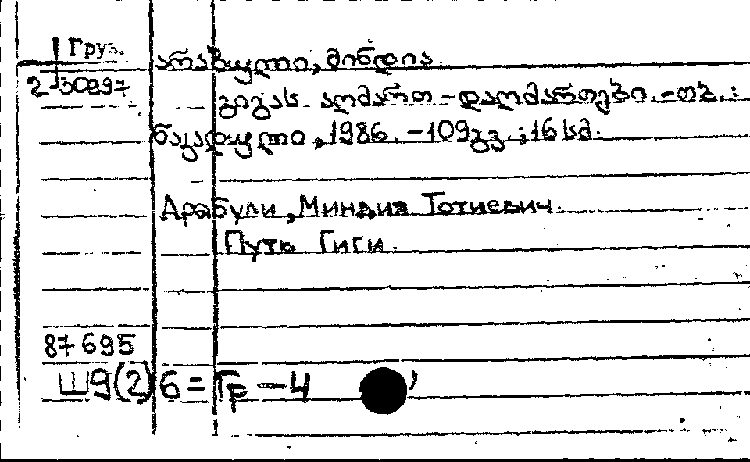 Груз.
2-30897
არაბული, მინდია
გიგას აღმართ-დაღმართები. - თბ. :
ნაკადული, 1986. - 109გვ. ; 16სმ.
Арабули, Миндия Тотиевич.
Пути Гиги.
87695
Ш9(2)6=Гр-4